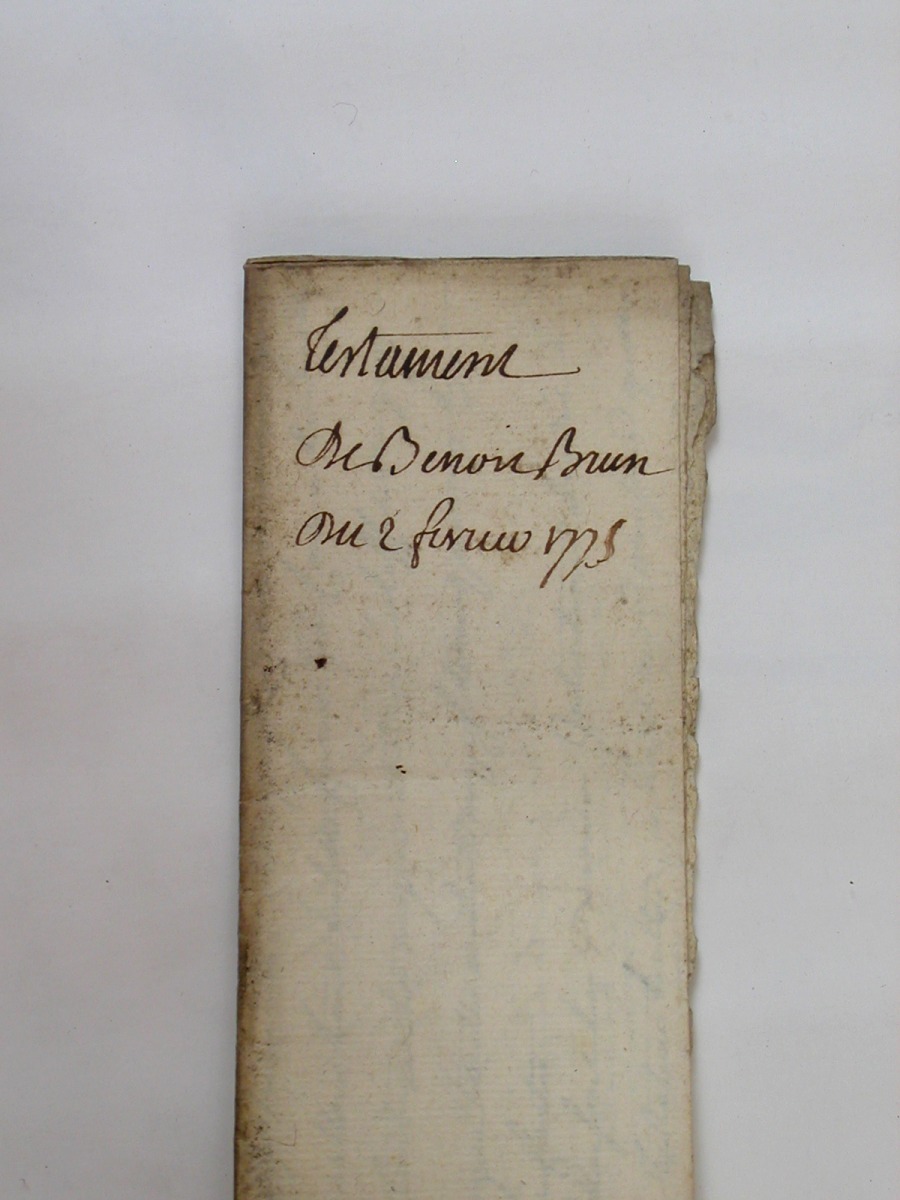 Testament
De Benoit Brun
Du 2 fevrier 1775